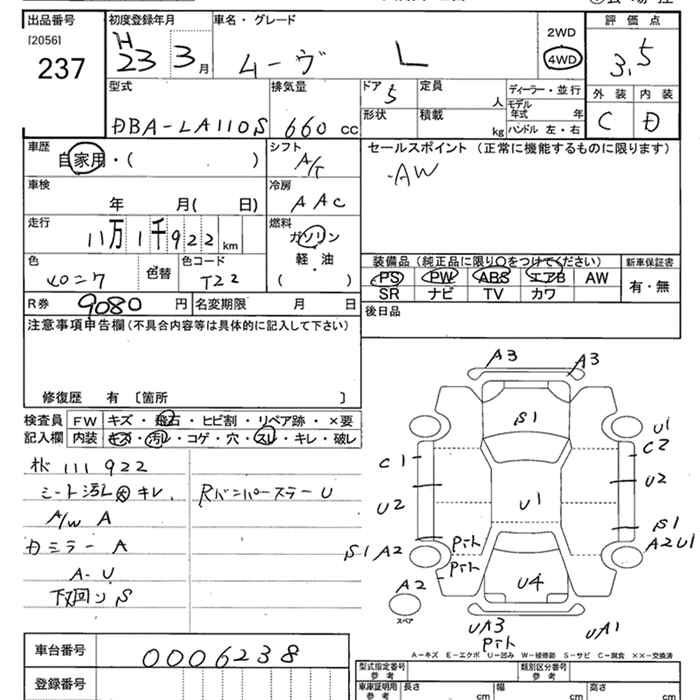 出品番号
[2056]
237
初度登録年月
H
23 3 月
車名・グレード
ムーヴ L
2WD
4WD
評価点
3,5
外装 内装
C D
型式
DBA-LA110S
排気量
660 cc
ドア 5
形状
定員 人
積載 kg
ディーラー・並行
モデル年式 年
ハンドル 左・右
車歴
自家用・( )
シフト
A/T
セールスポイント (正常に機能するものに限ります)
・AW
車検
年 月( 日)
冷房
AAC
走行
11万1千922 km
燃料
ガソリン
軽・油
( )
色
色替
色コード
T22
装備品 (純正品に限り○をつけてください)
新車保証書
PS PW ABS エアB AW
SR ナビ TV カワ
有・無
R券 9080 円
名変期限 月 日
後日品
注意事項申告欄(不具合内容等は具体的に記入して下さい)
修復歴 有 〔箇所 〕
検査員記入欄
FW キズ・飛石・ヒビ割・リペア跡・×要
内装 キズ・汚レ・コゲ・穴・スレ・キレ・破レ
111922
シート汚レ 大 キレ.
RバンパーステーU
A/W A
Dミラー A
A-U
下廻り S
A3 A3
S1
U1
C1 C2
U2 U2
U1
S1
S1 A2 A2U1
A2
U4
スペア
UA3
UA1
A-キズ E-エクボ U-凹み W-補修跡 S-サビ C-腐食 XX-交換済
車台番号
0006238
登録番号
型式指定番号 参考
類別区分番号 参考
車庫証明用 参考
長さ cm
幅 cm
高さ cm